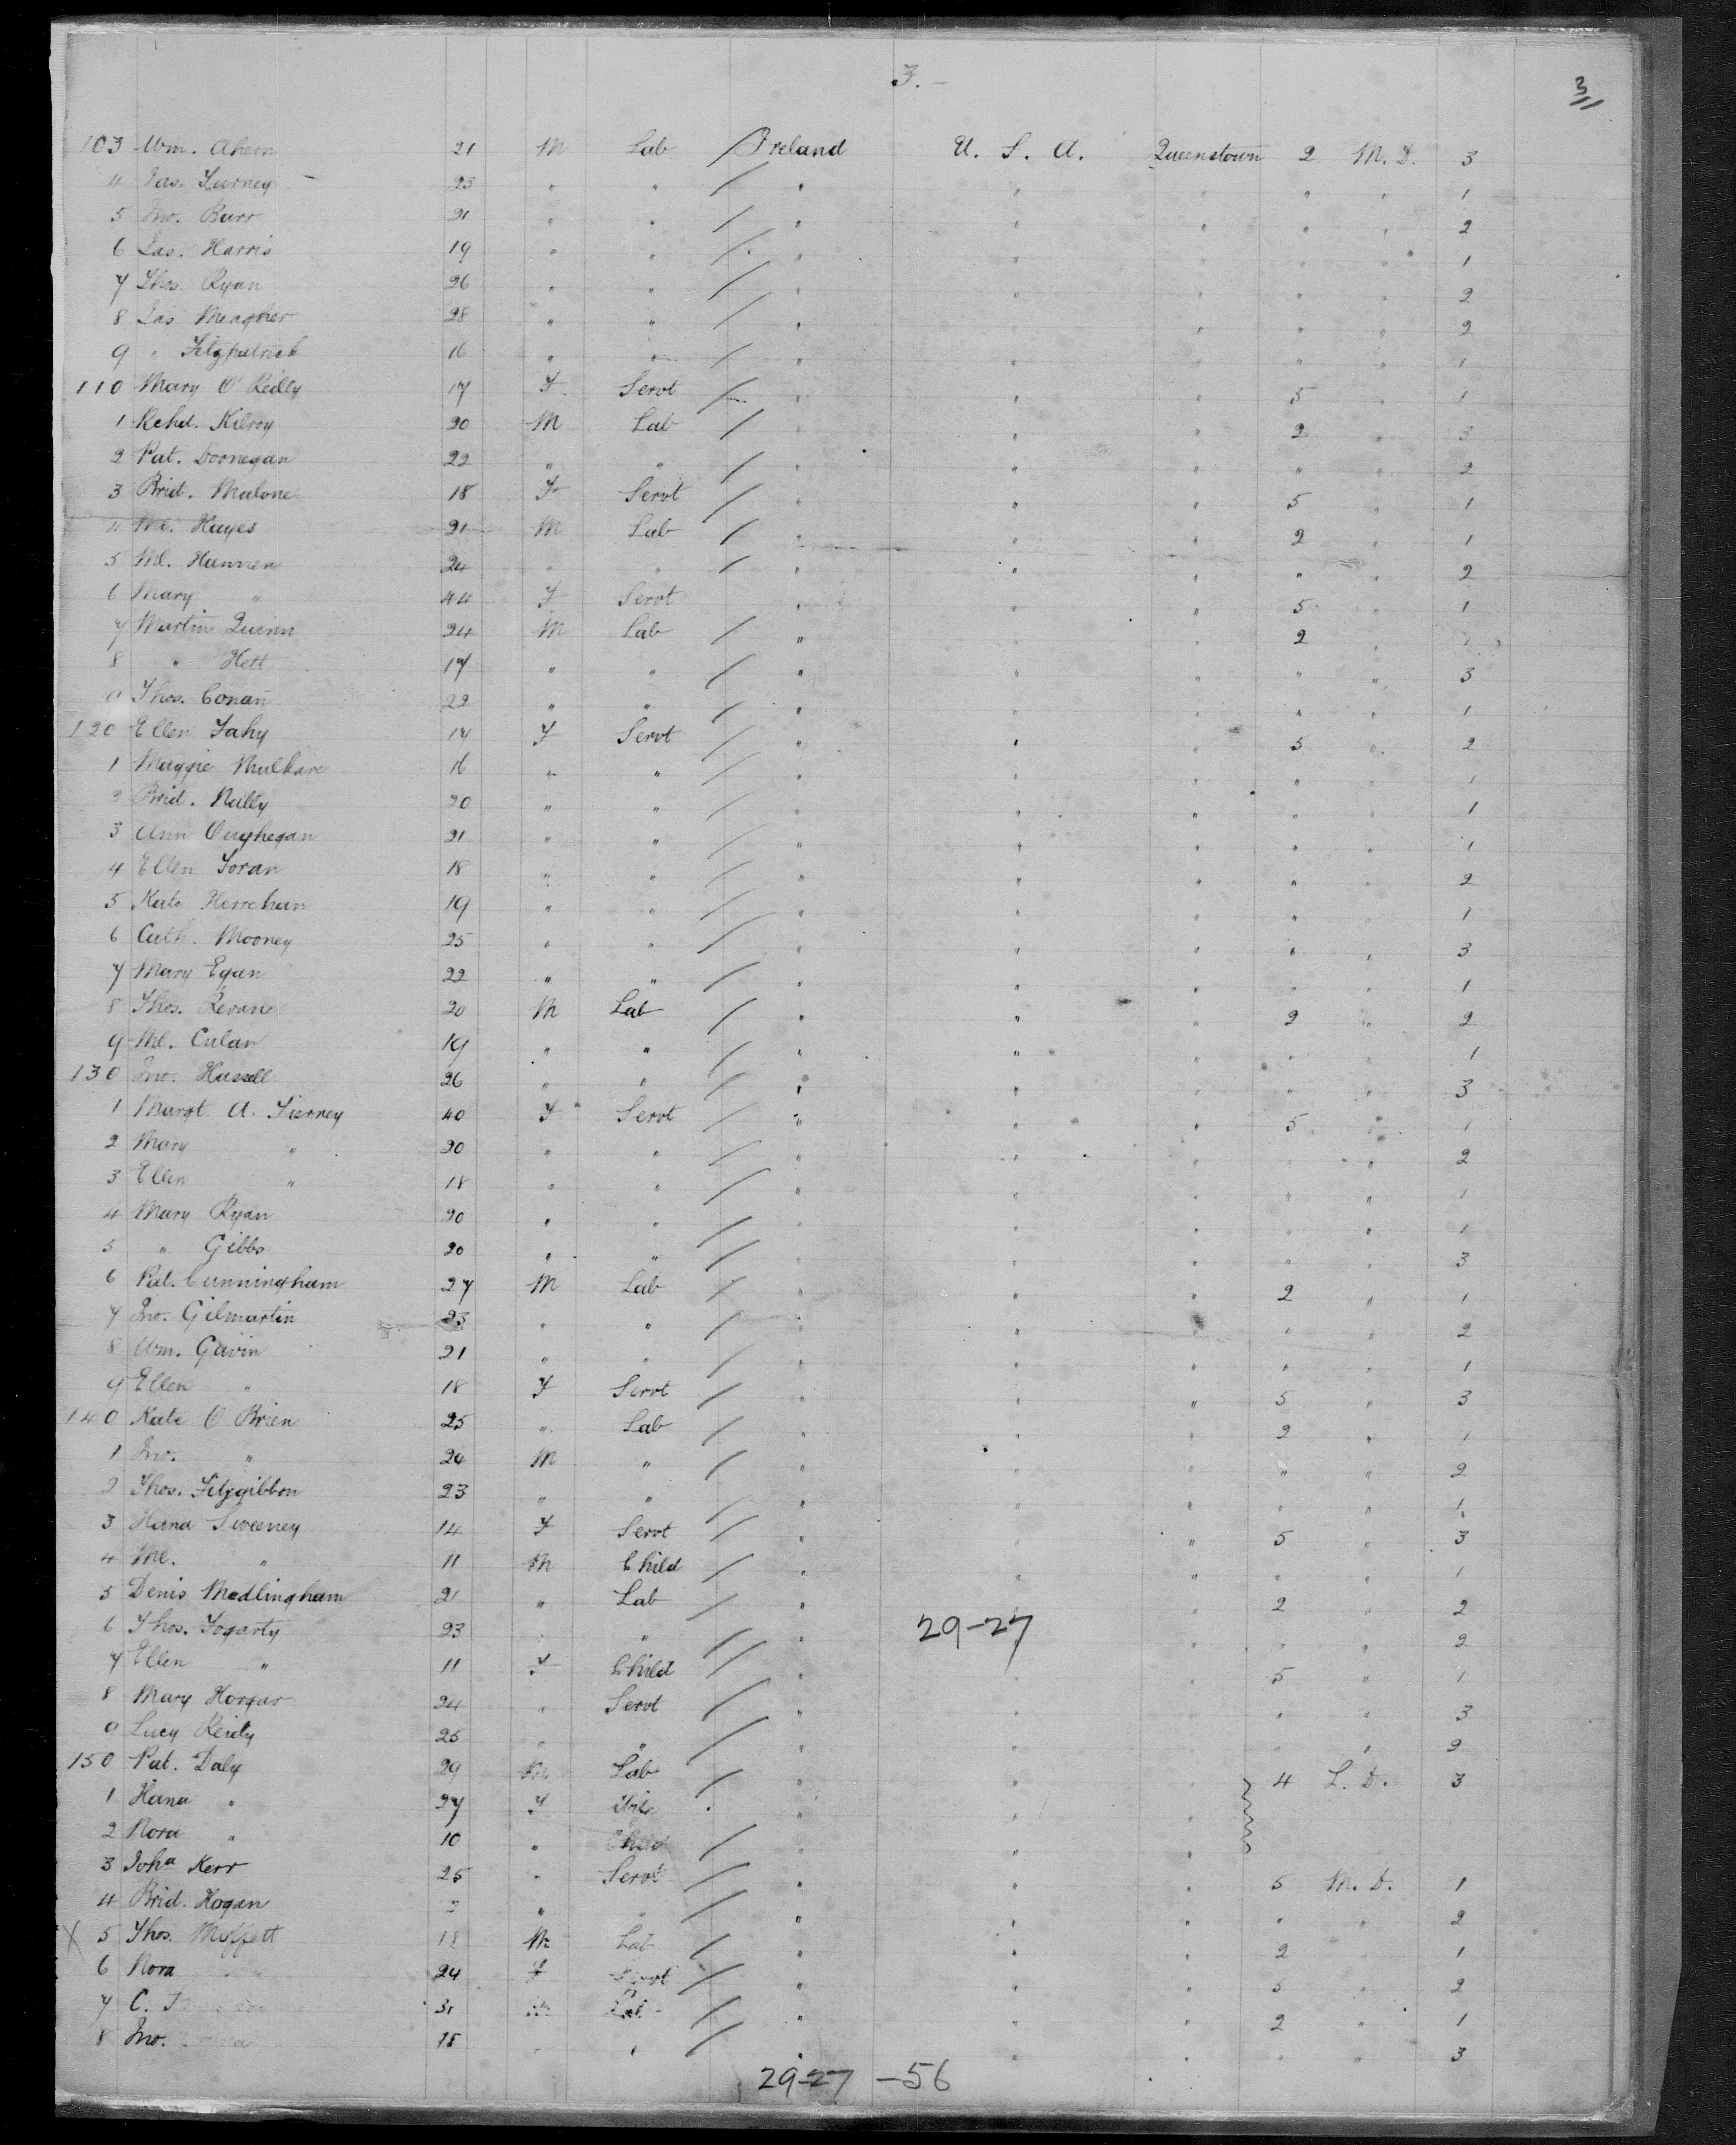 3.-
3
103 Wm. Ahern 21 M Lab Ireland U. S. A. Queenstown 2 M. D. 3
4 Jas. Tierney 23 " " " " " " " 1
5 Jno. Barr 21 " " " " " " " 2
6 Jas. Harris 19 " " " " " " " 1
7 Thos. Ryan 26 " " " " " " " 2
8 Jas Meagher 28 " " " " " " " 2
9 " Fitzpatrick 16 " " " " " " " 1
110 Mary O'Reilly 17 F Servt " " " 5 " 1
1 Rchd. Kilroy 20 M Lab " " " 2 " 3
2 Pat. Doonegan 22 " " " " " " " 2
3 Brid. Malone 18 F Servt " " " 5 " 1
4 Ml. Hayes 21 M Lab " " " 2 " 1
5 Ml. Hannen 24 " " " " " " " 2
6 Mary " 44 F Servt " " " 5 " 1
7 Martin Quinn 24 M Lab " " " 2 " 1
8 " Hett 17 " " " " " " " 3
9 Thos. Conan 22 " " " " " " " 1
120 Ellen Fahy 17 F Servt " " " 5 " 2
1 Maggie Mulhare 16 " " " " " " " 1
2 Brid. Nally 20 " " " " " " " 1
3 Ann Oughegan 21 " " " " " " " 1
4 Ellen Foran 18 " " " " " " " 2
5 Kate Herrehan 19 " " " " " " " 1
6 Cath. Mooney 25 " " " " " " " 3
7 Mary Egan 22 " " " " " " " 1
8 Thos. Kevane 20 M Lab " " " 2 " 2
9 Ml. Culan 19 " " " " " " " 1
130 Jno. Hassell 26 " " " " " " " 3
1 Margt A. Tierney 40 F Servt " " " 5 " 1
2 Mary " 20 " " " " " " " 2
3 Ellen " 18 " " " " " " " 1
4 Mary Ryan 20 " " " " " " " 1
5 " Gibbs 20 " " " " " " " 3
6 Pat. Cunningham 27 M Lab " " " 2 " 1
7 Jno. Gilmartin 23 " " " " " " " 2
8 Wm. Gavin 21 " " " " " " " 1
9 Ellen " 18 F Servt " " " 5 " 3
140 Kate O'Brien 25 " Lab " " " 2 " 1
1 Jno. " 24 M " " " " " " 2
2 Thos. Fitzgibbon 23 " " " " " " " 1
3 Hana Sweeney 14 F Servt " " " 5 " 3
4 Ml. " 11 M Child " " " " " 1
5 Denis Madlingham 21 " Lab " " " 2 " 2
6 Thos. Fogarty 23 " " " " " " " 2
29-27
7 Ellen " 11 F Child " " " 5 " 1
8 Mary Horgar 24 " Servt " " " " " 3
9 Lucy Reidy 25 " " " " " " " 2
150 Pat. Daly 29 M Lab " " " 4 L. D. 3
1 Hana " 27 F " " "
2 Nora " 10 " Child " " "
3 Joha Kerr 25 " Servt " " " 5 M. D. 1
4 Brid. Hogan " " " " " " " 2
X 5 Thos. Moffett 18 M Lab " " " 2 " 1
6 Nora 24 F Servt " " " 5 " 2
7 C. 31 M Lab " " " 2 " 1
8 Jno. 18 " " " " " " " 3
29-27 -56